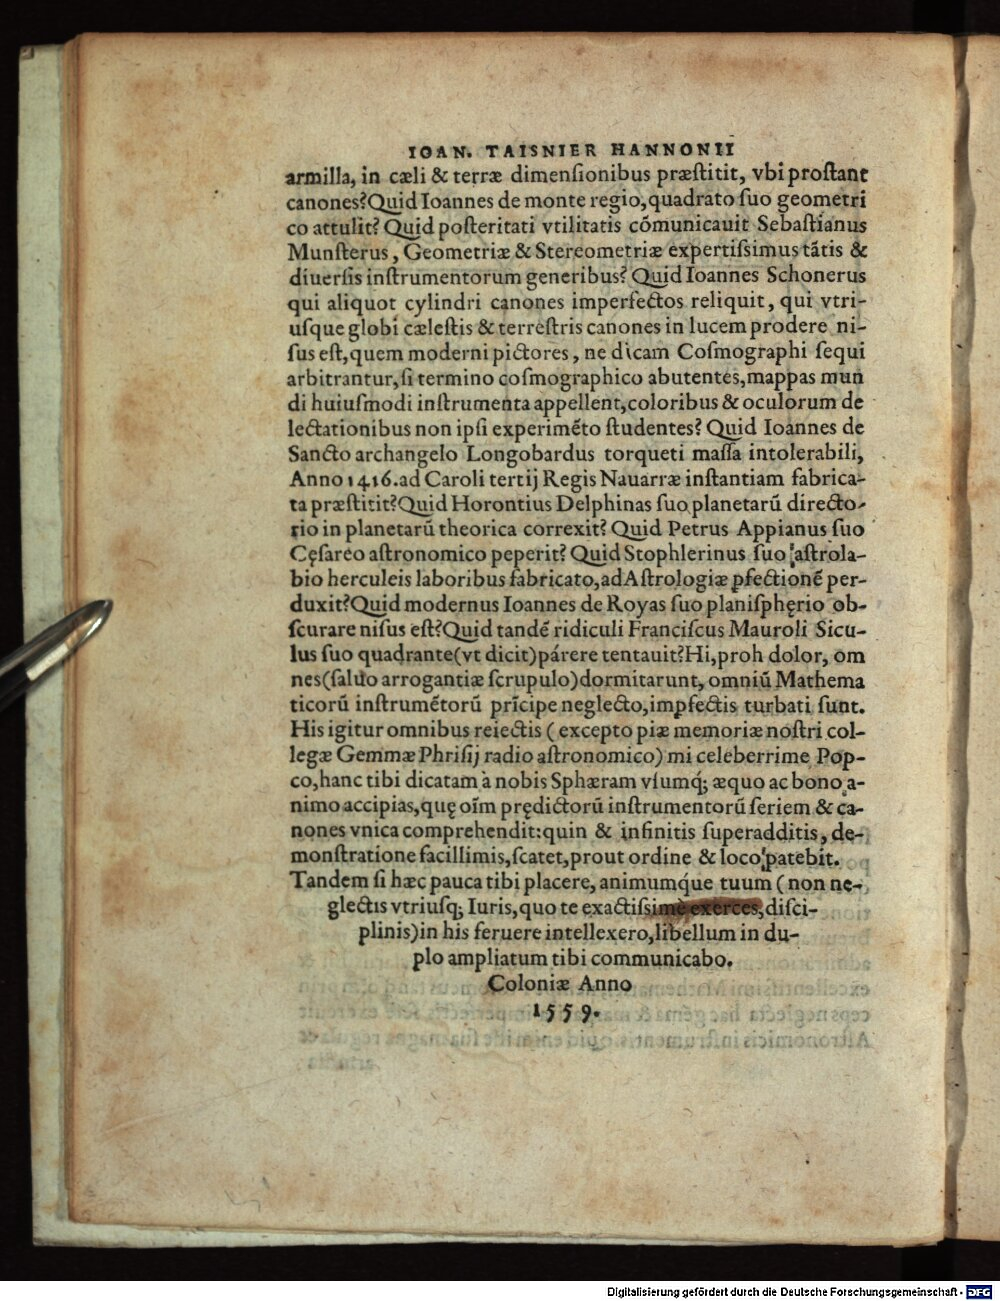 IOAN. TAISNIER HANNONII
armilla, in cæli & terræ dimenſionibus præſtitit, vbi proſtant
canones? Quid Ioannes de monte regio, quadrato ſuo geometri
co attulit? Quid poſteritati vtilitatis cõmunicauit Sebaſtianus
Munſterus, Geometriæ & Stereometriæ expertiſsimus tãtis &
diuerſis inſtrumentorum generibus? Quid Ioannes Schonerus
qui aliquot cylindri canones imperfectos reliquit, qui vtri-
uſque globi cæleſtis & terreſtris canones in lucem prodere ni-
ſus eſt, quem moderni pictores, ne dicam Coſmographi ſequi
arbitrantur, ſi termino coſmographico abutentes, mappas mun
di huiuſmodi inſtrumenta appellent, coloribus & oculorum de
lectationibus non ipſi experimẽto ſtudentes? Quid Ioannes de
Sancto archangelo Longobardus torqueti maſſa intolerabili,
Anno 1416. ad Caroli tertij Regis Nauarræ inſtantiam fabrica-
ta præſtitit? Quid Horontius Delphinas ſuo planetarũ directo-
rio in planetarũ theorica correxit? Quid Petrus Appianus ſuo
Cęſareo aſtronomico peperit? Quid Stophlerinus ſuo aſtrola-
bio herculeis laboribus fabricato, ad Aſtrologiæ ꝑfectionẽ per-
duxit? Quid modernus Ioannes de Royas ſuo planiſphęrio ob-
ſcurare niſus eſt? Quid tandẽ ridiculi Franciſcus Mauroli Sicu-
lus ſuo quadrante (vt dicit) párere tentauit? Hi, proh dolor, om
nes (ſaluo arrogantiæ ſcrupulo) dormitarunt, omniũ Mathema
ticorũ inſtrumẽtorũ prĩcipe neglecto, imꝑfectis turbati ſunt.
His igitur omnibus reiectis (excepto piæ memoriæ noſtri col-
legæ Gemmæ Phriſij radio aſtronomico) mi celeberrime Pop-
co, hanc tibi dicatam à nobis Sphæram vſumq́; æquo ac bono a-
nimo accipias, quę oĩm prędictorũ inſtrumentorũ ſeriem & ca-
nones vnica comprehendit: quin & infinitis ſuperadditis, de-
monſtratione facillimis, ſcatet, prout ordine & loco patebit.
Tandem ſi hæc pauca tibi placere, animumq́ue tuum (non ne-
glectis vtriuſq; Iuris, quo te exactiſsimè exerces, diſci-
plinis) in his feruere intellexero, libellum in du-
plo ampliatum tibi communicabo.
Coloniæ Anno
1559.
Digitalisierung gefördert durch die Deutsche Forschungsgemeinschaft - DFG